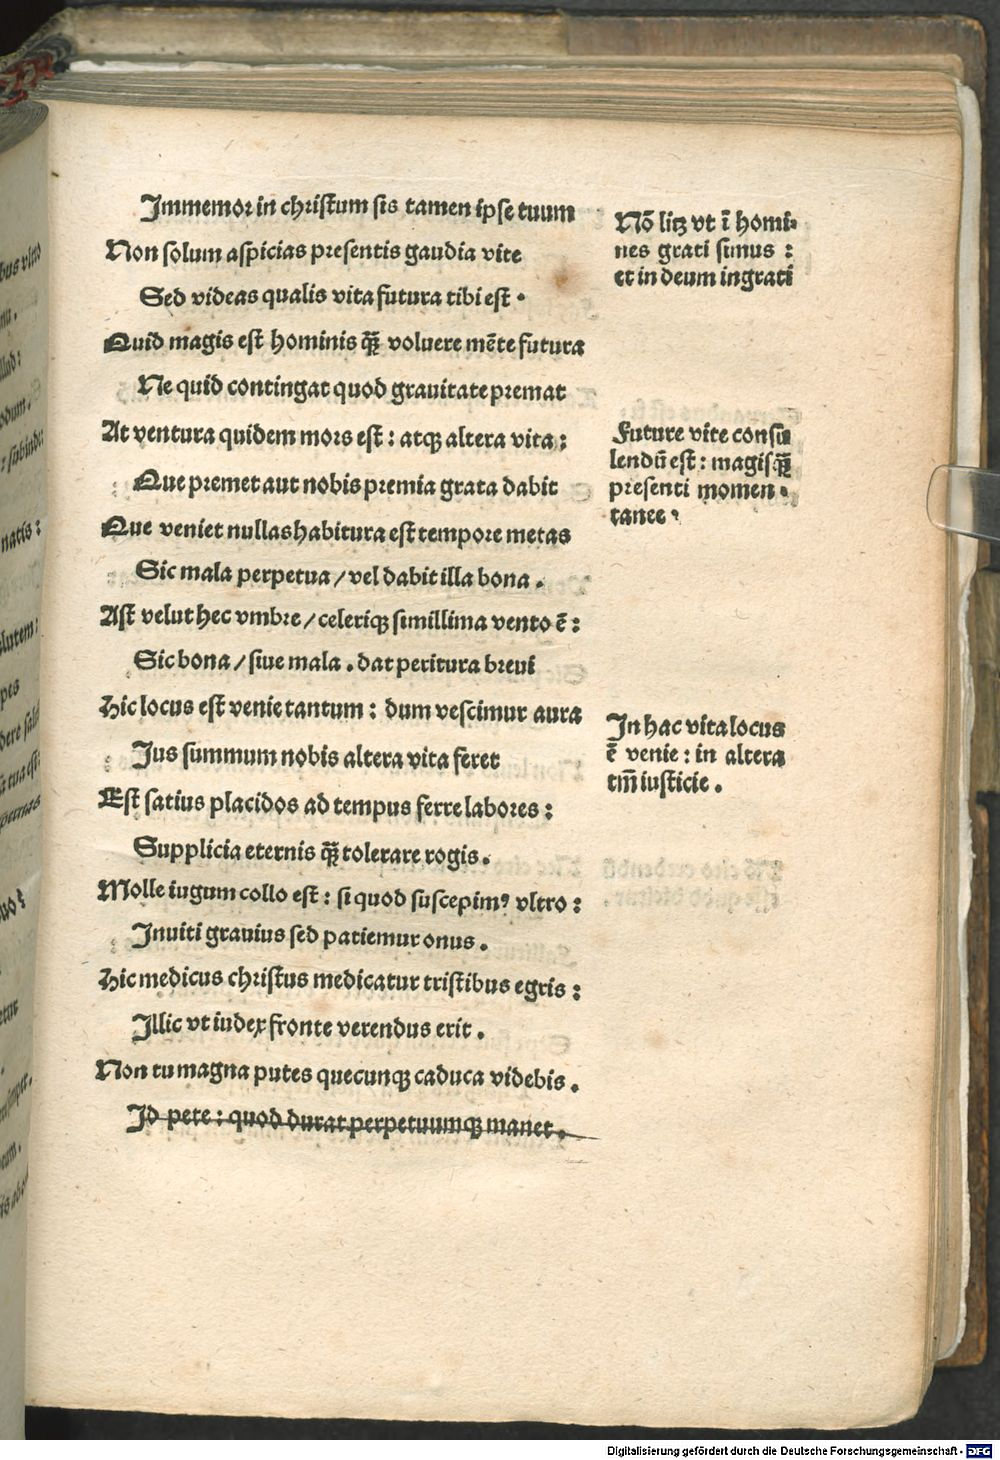 Immemor in christum sis tamen ipse tuum
Non solum aspicias presentis gaudia vite
Sed videas qualis vita futura tibi est .
Quid magis est hominis qꝫ̄ voluere mēte futura
Ne quid contingat quod grauitate premat
At ventura quidem mors est : atqꝫ altera vita :
Que premet aut nobis premia grata dabit
Que veniet nullas habitura est tempore metas
Sic mala perpetua / vel dabit illa bona .
Ast velut hec vmbre / celeriqꝫ simillima vento ē :
Sic bona / siue mala . dat peritura breui
Hic locus est venie tantum : dum vescimur aura
Jus summum nobis altera vita feret
Est satius placidos ad tempus ferre labores :
Supplicia eternis qꝫ̄ tolerare rogis .
Molle iugum collo est : si quod suscepimꝰ vltro :
Inuiti grauius sed patiemur onus .
Hic medicus christus medicatur tristibus egris :
Illic vt iudex fronte verendus erit .
Non tu magna putes quecunqꝫ caduca videbis .
Id pete : quod durat perpetuumqꝫ manet .
Nō litꝫ vt ī homi-
nes grati simus :
et in deum ingrati
Future vite consu
lendū est : magisqꝫ̄
presenti momen-
tanee .
In hac vita locus
ē venie : in altera
tm̄ iusticie .
natis :
lutem :
pes
Digitalisierung gefördert durch die Deutsche Forschungsgemeinschaft - DFG